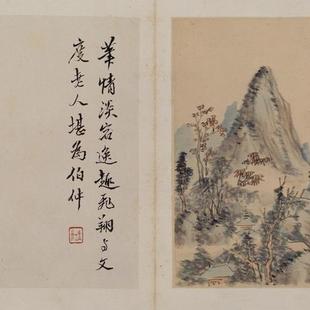 華情淡宕逸趣飛翔與文
度老人堪為伯仲